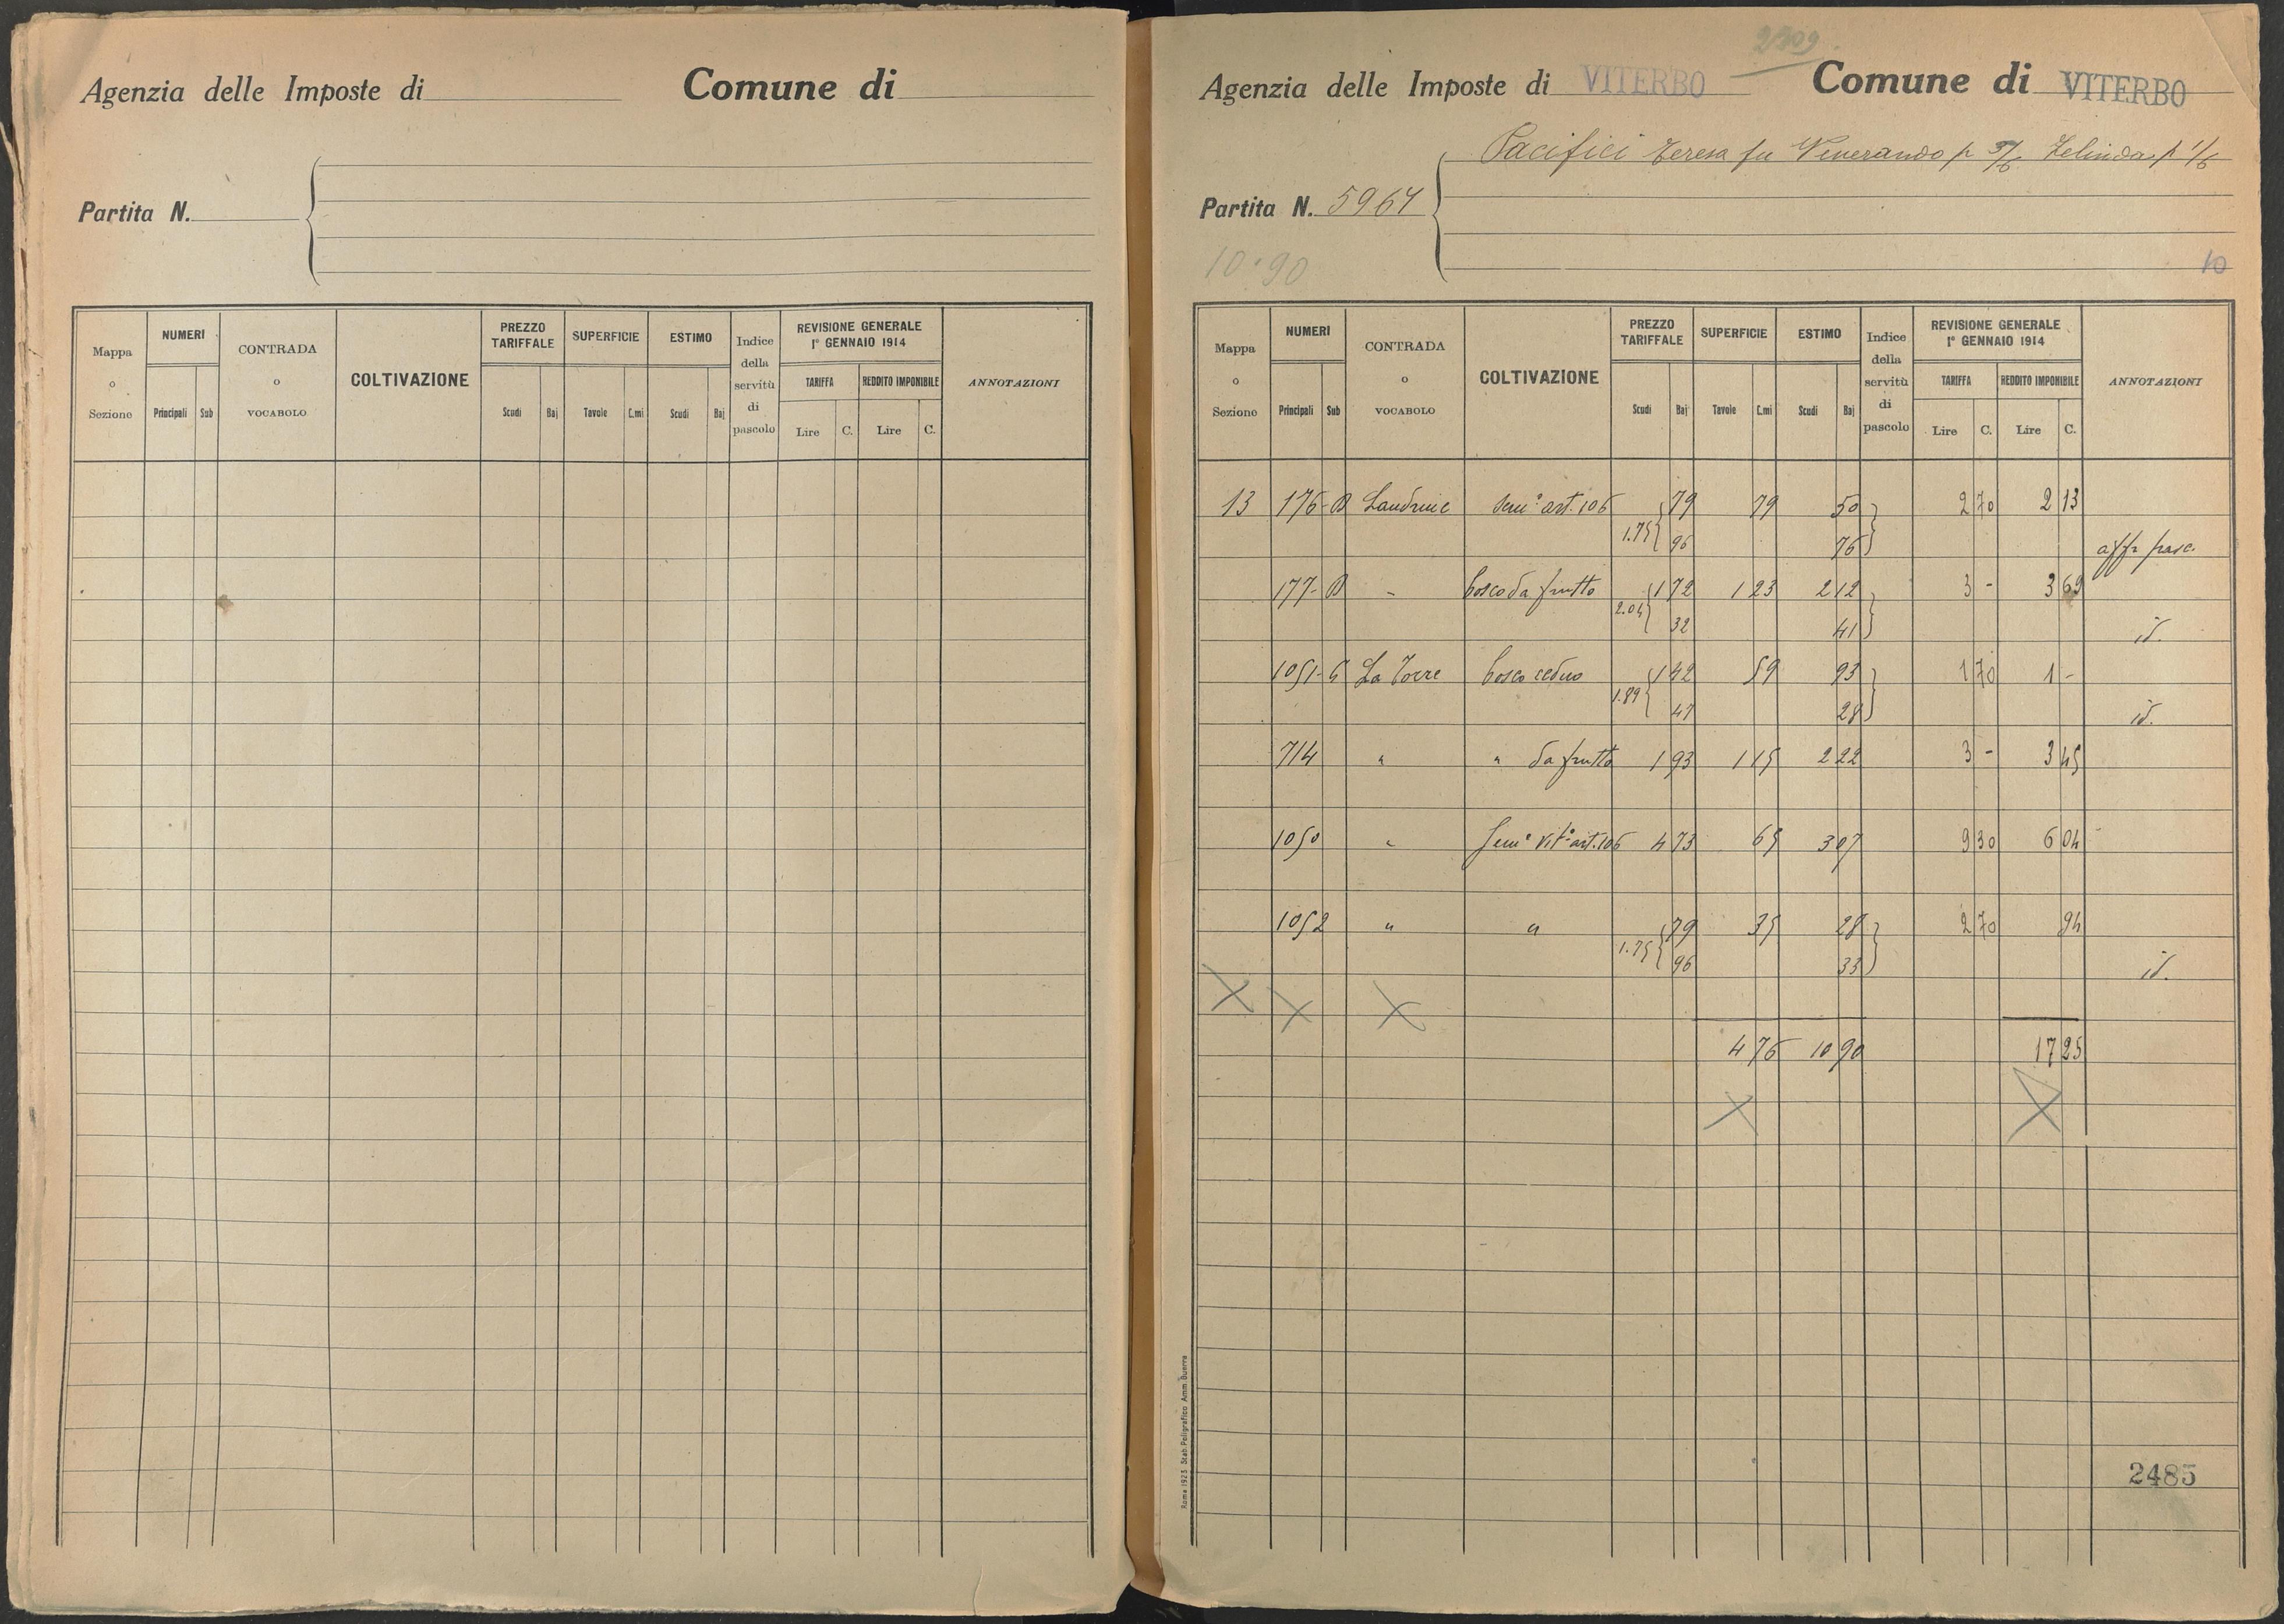 Agenzia delle Imposte di
Comune di
Partita N.
Mappa o Sezione
NUMERI
Principali Sub
CONTRADA o VOCABOLO
COLTIVAZIONE
PREZZO TARIFFALE
Scudi Baj
SUPERFICIE
Tavole C.mi
ESTIMO
Scudi Baj
Indice della servitù di pascolo
REVISIONE GENERALE 1° GENNAIO 1914
TARIFFA
Lire C.
REDDITO IMPONIBILE
Lire C.
ANNOTAZIONI
2309
Agenzia delle Imposte di VITERBO
Comune di VITERBO
Pacifici Teresa fu Venerando p 5/6 Zelinda p 1/6
Partita N. 5964
10.90
10
Mappa o Sezione
NUMERI
Principali Sub
CONTRADA o VOCABOLO
COLTIVAZIONE
PREZZO TARIFFALE
Scudi Baj
SUPERFICIE
Tavole C.mi
ESTIMO
Scudi Baj
Indice della servitù di pascolo
REVISIONE GENERALE 1° GENNAIO 1914
TARIFFA
Lire C.
REDDITO IMPONIBILE
Lire C.
ANNOTAZIONI
13 176-B Semo art. 106 79 79 50 2 70 2 13
1.75 96 76 affr pasc.
177-B - bosco da frutto 1 72 1 23 2 12 3 - 3 69
2.04 32 41 id.
1051-G La Torre bosco ceduo 1 42 59 93 1 70 1 -
1.89 47 28 id.
714 " " da frutto 1 93 1 15 2 22 3 - 3 45
1050 " Semo vito art. 106 4 73 65 3 07 9 30 6 04
1052 " " 79 35 28 2 70 94
1.75 96 33 id.
4 76 10 90 17 25
2485
Roma 1923 Stab. Poligrafico Amm. Guerra